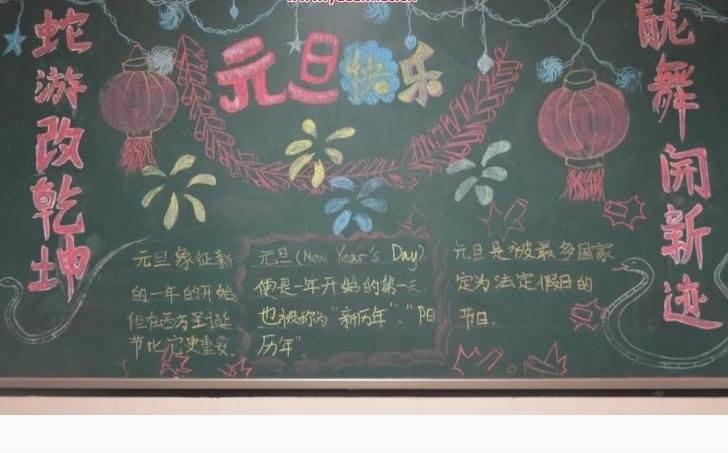 元旦快乐
蛇游改乾坤
舞开新迹
元旦象征新
的一年的开始
但在西方圣诞
节比它更重要
元旦(New Year's Day)
便是一年开始的第一天
也被称为“新历年”、“阳
历年”
元旦是被最多国家
定为法定假日的
节日.